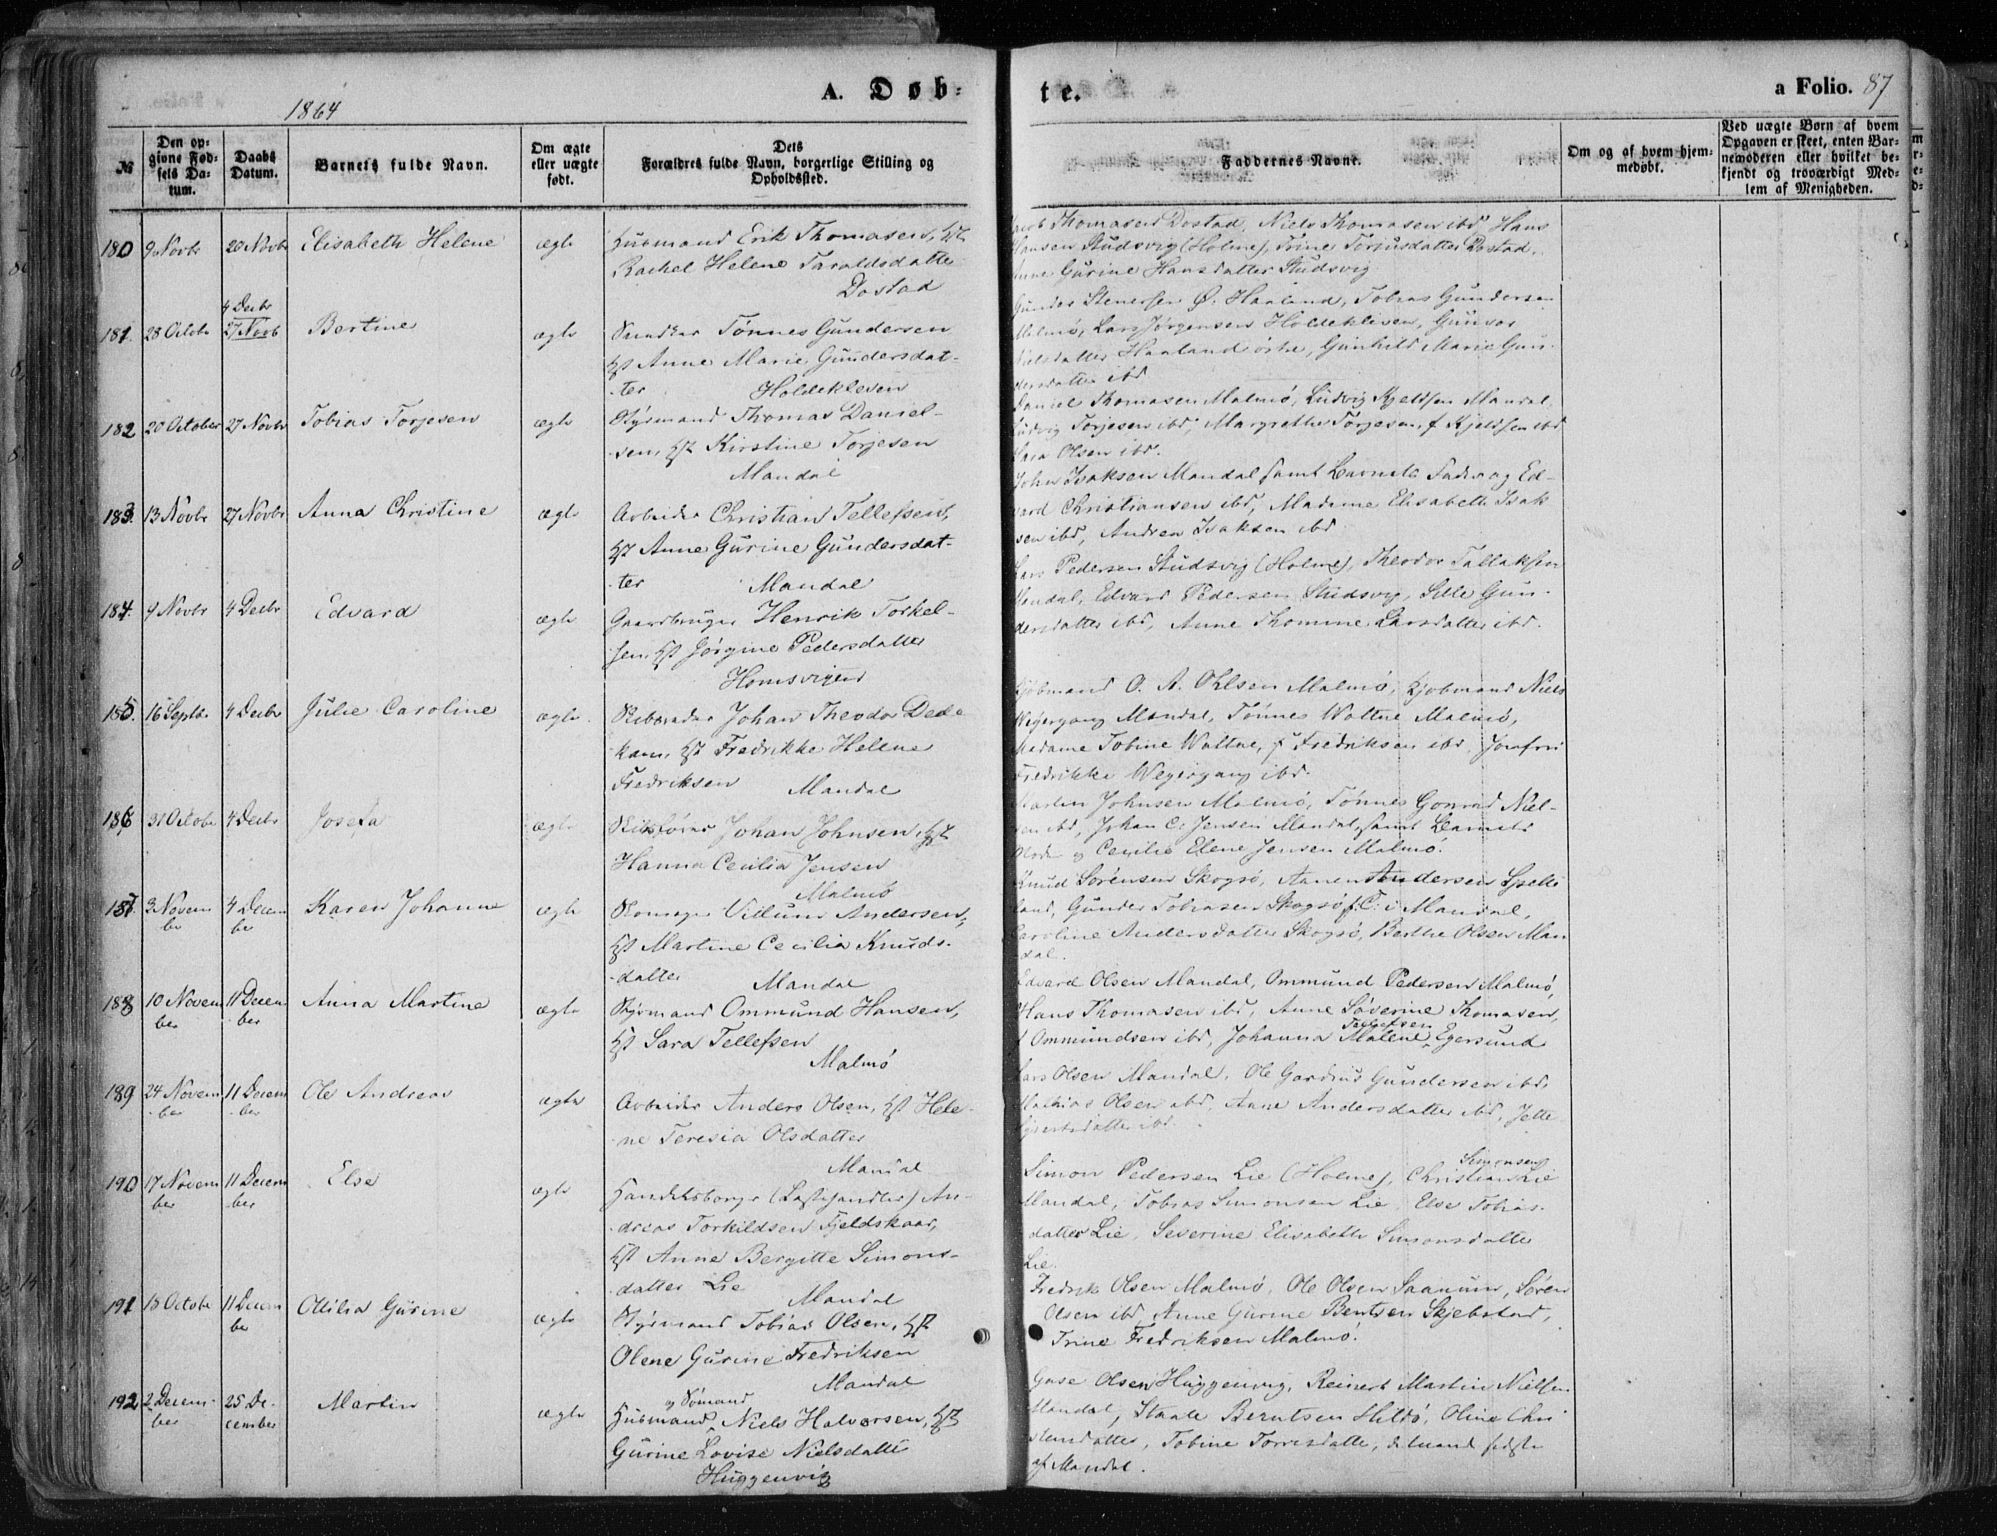 1864
A. Døb-
te.
a Folio. 87
№
Den op-
givne Fød-
sels Da-
tum.
Daabs
Datum.
Barnets fulde Navn.
Om ægte
eller uægte
født.
Dets
Forældres fulde Navn, borgerlige Stilling og
Opholdssted.
Faddernes Navne.
Om og af hvem hjem-
medøbt.
Ved uægte Børn af hvem
Opgaven er skeet, enten Bar-
nemoderen eller hvilket be-
kjendt og troværdigt Med-
lem af Menigheden.
180 9 Novbr 20 Novbr Elisabeth Helene ægte Huusmand Erik Thomasen, Hst
Rachel Helene Taraldsdatter
Dostad
Thomasen Dostad, Niels Thomasen ibd Hans
Hansen Studsvig (Holme), Trine Torjusdatter Dostad,
Gurine Hansdatter Studsvig
4 Decbr
181. 28 Octobr 27 Novb Bertine ægte Tønnes Gundersen
Hst Anne Marie Gundersdat-
ter Holdekleven
Stenersen Ø. Haaland, Tobias Gundersen
Malmö, Lars Jörgensen Holdekleven, Gunvor
datter Haaland östre, Gunhild Marie Gun-
dersdatter ibd
182 20 October 27 Novbr Tobias Torjesen ægte Styrmand Thomas Daniel-
sen, Hst Kirstine Torjesen
Mandal
Daniel Thomasen Malmö, Ludvig Kjeldsen Mandal,
Ludvig Torjesen ibd, Margrethe Torjesen, f Kjeldsen ibd
Sara Olsen ibd.
183. 13 Novbr 27 Novbr Anna Christine ægte Arbeider Christian Tellefsen,
Hst Anne Gurine Gundersdat-
ter Mandal
John Isaksen Mandal samt Barnets Fader og Ed-
vard Christiansen ibd, Madame Elisabeth Isak
sen ibd, Andrea Isaksen ibd
184. 9 Novbr 4 Decbr Edvard ægte Gaardbruger Henrik Torkel-
sen, Hst Jörgine Pedersdatter
Homsvigen
Lars Pedersen Studsvig (Holme), Theodor Tallaksen
Mandal, Edvard Pedersen Studsvig, Sille Gun-
dersdatter ibd, Anne Thomine Larsdatter ibd.
185. 16 Septbr 4 Decbr Julie Caroline ægte Johan Theodor Dede
kam, Hst Fredrikke Helene
Fredriksen Mandal
Kjöbmand O. A. Ohlsen Malmö, Kjöbmand Niels
Wegergang Mandal, Tönnes Wattne Malmö,
Madame Tobine Wattne, f Fredriksen ibd, Jomfru
Fredrikke Wegergang ibd.
186 31 Octobr 4 Decbr Josefa ægte Johan Johnsen, Hst
Hanna Cecilia Jensen
Malmö
Martin Johnsen Malmö, Tönnes Gonrad Niel-
sen ibd, Johan C. Jensen Mandal, samt Barnets
Moder og Cecilie Elene Jensen Malmö.
187. 3 Novem
ber 4 Decem
ber Karen Johanne ægte Villum Andersen,
Hst Martine Cecilia Knuds-
datter Mandal
Knud Sörensen Skogsö, Andersen
land, Gunder Tobiasen Skogsö f.T. i Mandal,
Caroline Andersdatter Skogsö, Berthe Olsen Man
dal.
188 10 Novem
ber 11 Decem
ber Anna Martine ægte Styrmand Ommund Hansen,
Hst Sara Tellefsen
Malmö
Edvard Olsen Mandal, Ommund Pedersen Malmö,
Hans Thomasen ibd, Anne Söverine Thomasen,
Tellefsen
f Ommundsen ibd, Johanna Malene, Egersund
189 24 Novem
ber 11 Decem
ber Ole Andreas ægte Arbeider Anders Olsen, Hst Hele-
ne Teresia Olsdatter
Mandal
Lars Olsen Mandal, Ole Gundersen ibd,
Mathias Olsen ibd, Anne Andersdatter ibd, Jette
datter ibd.
190 17 Novem
ber 11 Decem
ber Else ægte Handelsborger (Lasthandler) An-
dreas Torkildsen Fjeldskaar,
Hst Anne Bergitte Simons-
datter Lie Mandal
Simonsen
Simon Pedersen Lie (Holme), Christian Lie
Mandal, Tobias Simonsen Lie, Else Tobias-
datter Lie, Severine Elisabeth Simonsdatter
Lie.
191 Octobr 11 Decem
ber Ottilia Gurine ægte Styrmand Tobias Olsen, Hst
Olene Gurine Fredriksen
Mandal
Fredrik Olsen Malmö, Ole Olsen Saanum, Sören
Olsen ibd, Anne Gurine Bentsen Skjebstad,
Trine Fredriksen Malmö.
192 2 Decem-
ber 25 De-
cember Martin ægte og Sömand
Huusmand Niels Halvorsen, Hst
Gurine Lovise Nielsdatter
Huggenvig
Olsen Huggenvig, Reinert Martin Nielsen
Mandal, Staale Berntsen Hildö, Oline Chri
stensdatter, Tobine Torresdatter,
af Mandal.